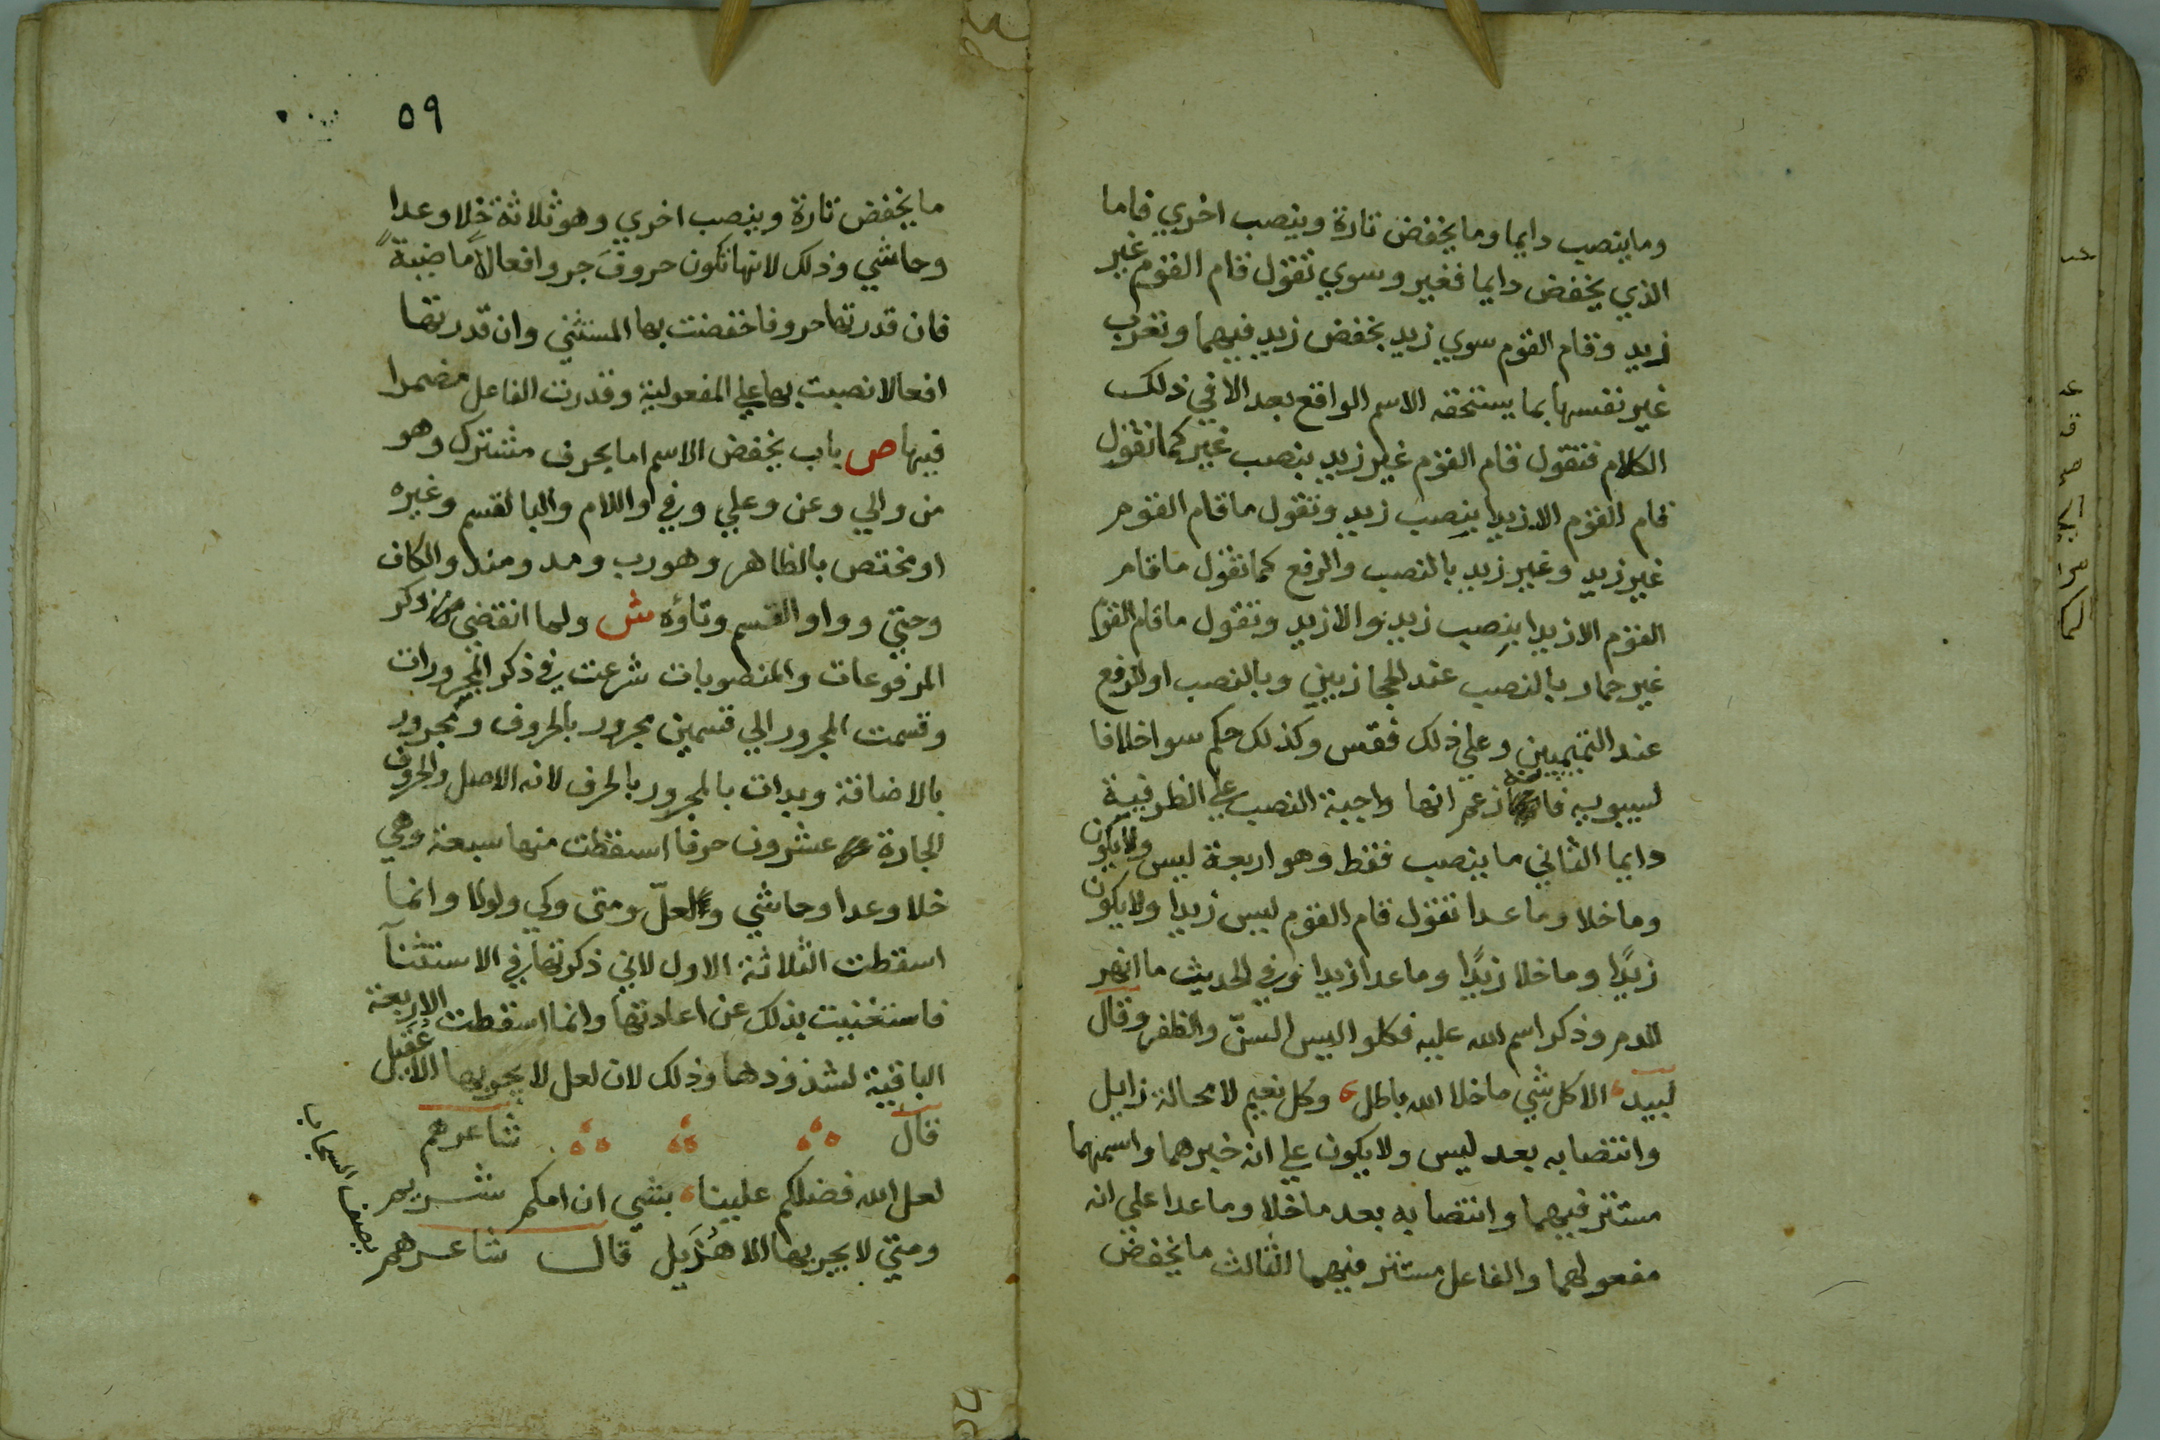 وما ينصب دايما وما يخفض تارة وينصب اخري فاما
الذي يخفض دايما فغير وسوي تقول قام القوم غير
زيد وقام القوم سوي زيد بخفض زيد فيهما وتعرب
غير نفسها بما يستحقه الاسم الواقع بعد الا في ذلك
الكلام فتقول قام القوم غير زيد بنصب غير كما تقول
قام القوم الا زيدا بنصب زيد وتقول ما قام القوم
غير زيد وغير زيد بالنصب والرفع كما تقول ما قام
القوم الا زيدا بنصب زيد والا زيد وتقول ما قام القوم
غير حمار بالنصب عند الحجازيين وبالنصب او الرفع
عند التميميين وعلي ذلك فقس وكذلك حكم سوا خلافا
لسيبويه فانه زعم انها واجبة النصب علي الظرفية
دايما الثاني ما ينصب فقط وهو اربعة ليس ولا يكون
وما خلا وما عدا تقول قام القوم ليس زيدا ولا يكون
زيدًا وما خلا زيدًا وما عدا زيدا وفي الحديث ما انهر
الدم وذكر اسم الله عليه فكلوا ليس السنّ والظفر وقال
لبيد الا كل شي ما خلا الله باطل وكل نعيم لا محالة زايل
وانتصابه بعد ليس ولا يكون علي انه خبرهما واسمهما
مستتر فيهما وانتصابه بعد ما خلا وما عدا علي انه
مفعولهما والفاعل مستتر فيهما الثالث ما يخفض
٥٩
ما يخفض تارة وينصب اخري وهو ثلاثة خلا وعدا
وحاشي وذلك لانها تكون حروفَ جر وافعالًا ماضيةً
فان قدرتها حروفا خفضت بها المستثني وان قدرتها
افعالا نصبت بها علي المفعولية وقدرت الفاعل مضمرا
فيها ص باب يخفض الاسم اما بحرف مشترك وهو
من والي وعن وعلي وفي واللام والبا لقسم وغيره
او مختص بالظاهر وهو رب ومد ومنذ والكاف
وحتي وواو القسم وتاؤه ش ولما انقضي من ذكر
المرفوعات والمنصوبات شرعت في ذكر المجرورات
وقسمت المجرور الي قسمين مجرور بالحروف ومجرور
بالاضافة وبدات بالمجرور بالحرف لانه الاصل والحروف
الجارة عشرون حرفا اسقطت منها سبعة وهي
خلا وعدا وحاشي ولعلّ ومتي وكي ولولا وانما
اسقطت الثلاثة الاول لاني ذكرتها في الاستثنآ
فاستغنيت بذلك عن اعادتها وانما اسقطت الاربعة
الباقية لشذوذها وذلك لان لعل لا يجر بها الا عُقيل
قال شاعرهم
لعل الله فضلكم علينا بشي ان امكم شريم
ومتي لا يجر بها الا هُذَيل قال شاعرهم
يصف السحاب